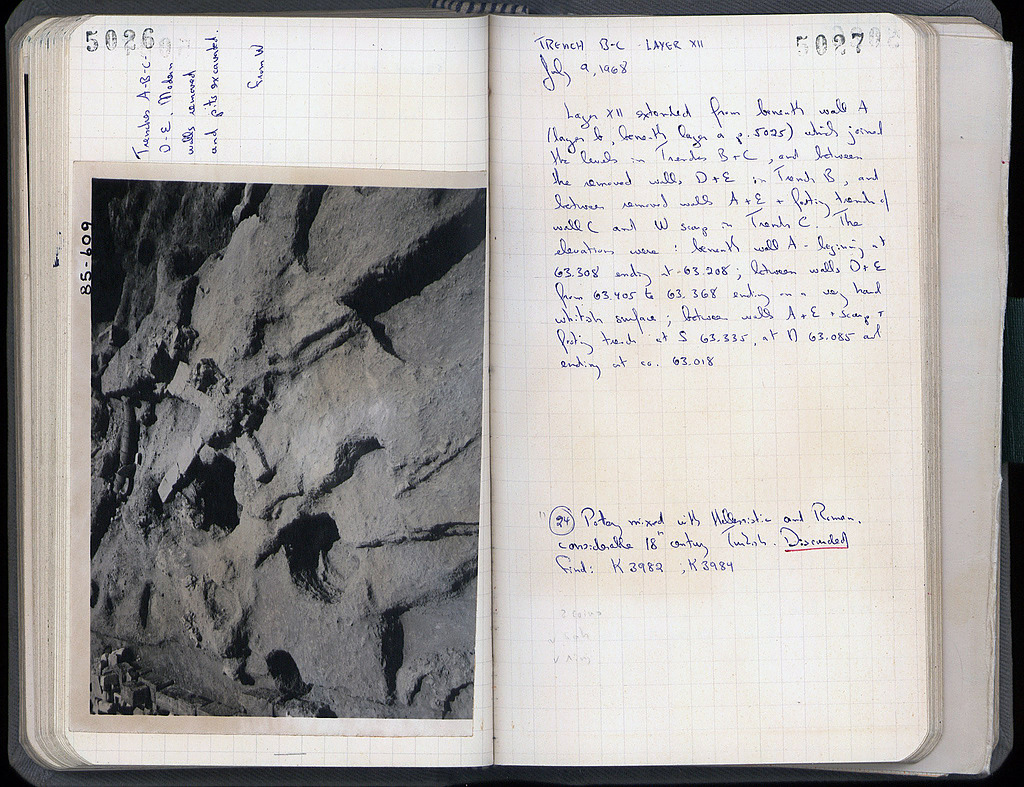 5026
Trenches A-B-C-
D-E. Modern
walls removed
and pits excavated.
From W
85-609
5027
TRENCH B-C LAYER XII
July 9, 1968
Layer XII extended from beneath wall A
(layer b, beneath layer a p. 5025) which joined
the levels in Trenches B+C, and between
the removed walls D+E in Trench B, and
between removed walls A+E + footing trench of
wall C and W scarp in Trench C. The
elevations were: beneath wall A - beginning at
63.308 ending at 63.208; between walls D+E
from 63.405 to 63.368 ending on a very hard
whitish surface; between walls A+E + scarp +
footing trench at S 63.335, at N 63.085 and
ending at ca. 63.018
24 Pottery mixed with Hellenistic and Roman.
considerable 18th century Turkish. Discarded
Find: K 3982 ; K 3984